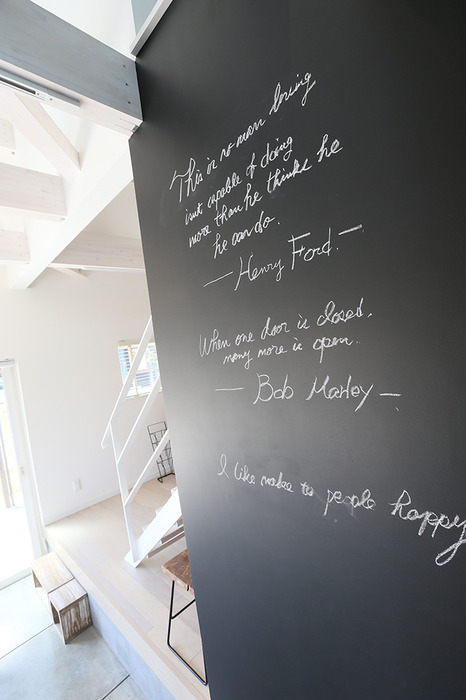 This is no man loving
isnt capable of doing
more than he thinks he
he can do.
— Henry Ford. —
When one door is closed,
many more is open.
— Bob Marley —
I like make to people happy